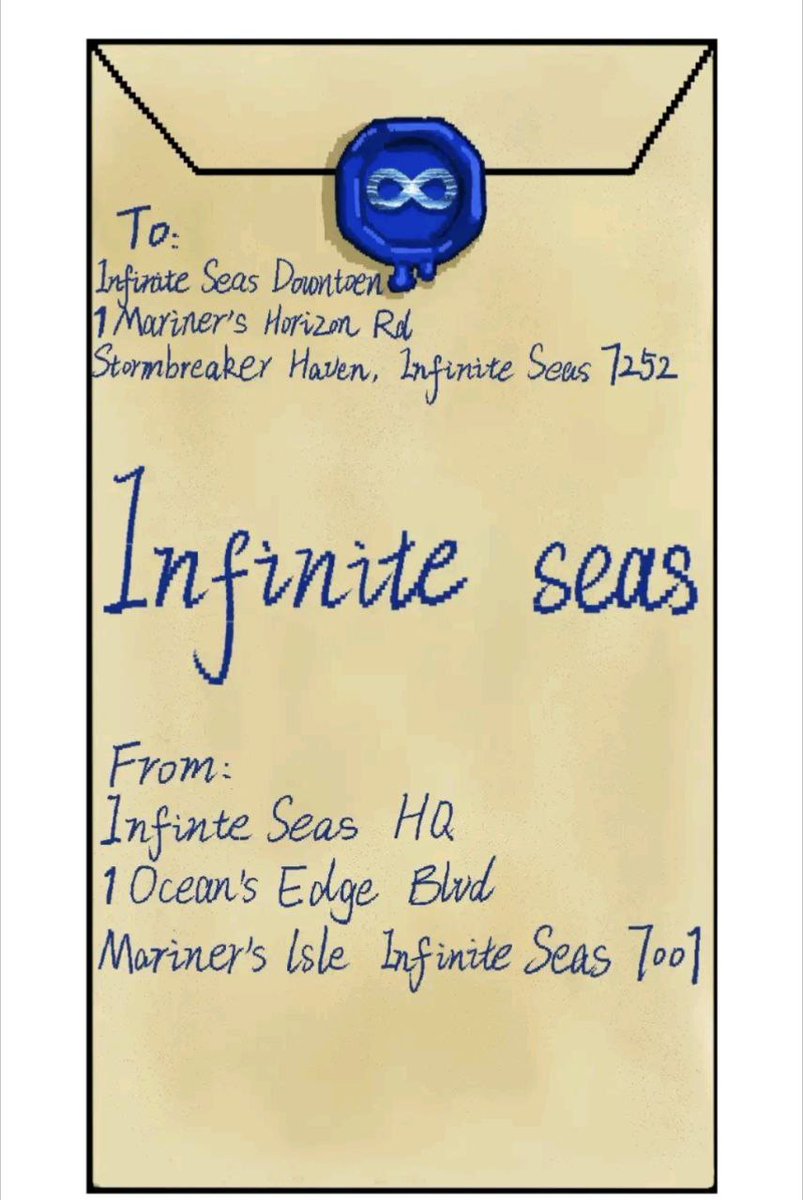 To:
Infinite Seas Downtoen
1 Mariner's Horizon Rd
Stormbreaker Haven, Infinite Seas 7252
Infinite seas
From:
Infinte Seas HQ
1 Ocean's Edge Blvd
Mariner's Isle Infinite Seas 7001